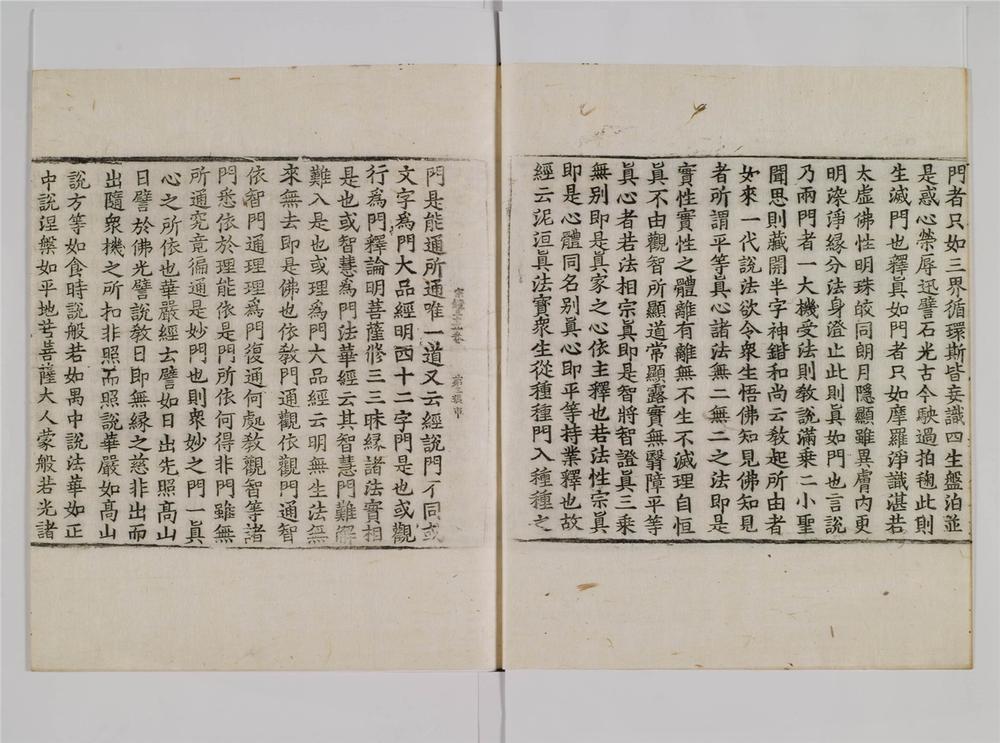 門者只如三界循環斯皆妄識四生盤泊並
是惑心榮辱迅譬石光古今駛過拍毱此則
生滅門也釋眞如門者只如摩羅淨識湛若
太虛佛性明珠皎同朗月隱顯雖異膚內更
明染淨緣分法身澄止此則眞如門也言說
乃兩門者一大機受法則敎說滿乗二小聖
聞思則藏開半字神鍇和尚云敎起所由者
如來一代說法欲令衆生悟佛知見佛知見
者所謂平等眞心諸法無二無二之法即是
實性實性之體離有離無不生不滅理自恒
眞不由觀智所顯道常顯露實無翳障平等
眞心者若法相宗眞即是智將智證眞三乘
無别即是眞家之心依主釋也若法性宗眞
即是心體同名别眞心即平等持業釋也故
經云泥洹眞法寶衆生從種種門入種種之
門是能通所通唯一道又云經說門不同或
文字為門大品經明四十二字門是也或觀
行爲門釋論明菩薩修三三昧緣諸法實相
是也或智慧為門法華經云其智慧門難解
難入是也或理爲門大品經云明無生法無
來無去即是佛也依敎門通觀依觀門通智
依智門通理理爲門復通何處敎觀智等諸
門悉依於理能依是門所依何得非門雖無
所通究竟徧通是妙門也則衆妙之門一眞
心之所依也華嚴經云譬如日出先照高山
日譬於佛光譬說敎日即無緣之慈非出而
出隨衆機之所扣非照而照說華嚴如高山
說方等如食時說般若如禺中說法華如正
中說涅槃如平地苦菩薩大人蒙般若光諸